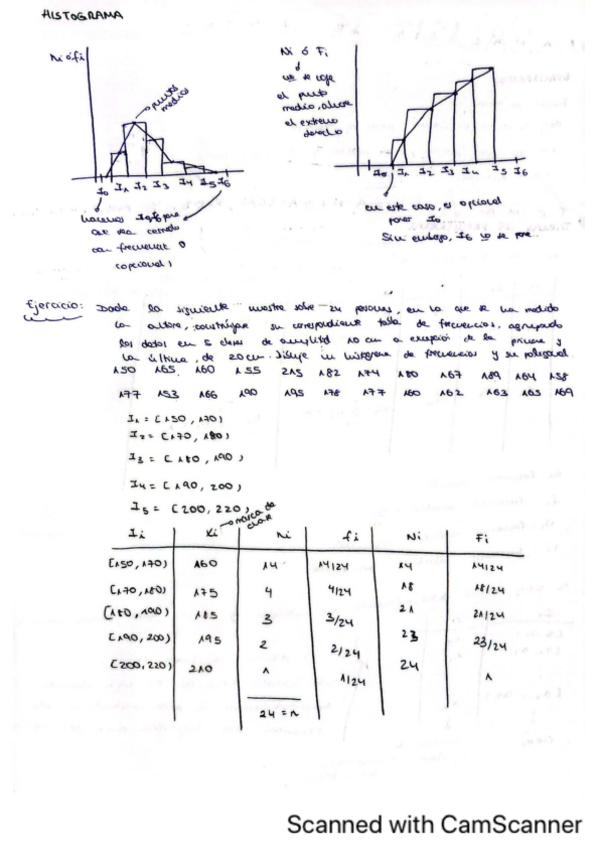 HISTOGRAMA
Ni ó fi
puntos
medios
I0 I1 I2 I3 I4 I5 I6
hacemos I0 y I6 para
que sea cerrado
con frecuencia 0
(opcional)
Ni ó Fi
no se coge
el punto
medio, ahora
el extremo
derecho
I0 I1 I2 I3 I4 I5 I6
en este caso, es opcional
poner I0
Sin embargo, I6 no se pone
Ejercicio: Dada la siguiente muestra sobre 24 personas, en la que se ha medido
la altura, constrúyase su correspondiente tabla de frecuencias, agrupando
los datos en 5 clases de amplitud 10 cm a excepción de la primera y
la última, de 20cm. Dibuje un histograma de frecuencias y su poligonal
150 165 160 155 215 182 174 180 167 189 164 158
177 153 166 190 195 178 177 160 162 163 165 169
I1 = [150, 170)
I2 = [170, 180)
I3 = [180, 190)
I4 = [190, 200)
I5 = [200, 220)
marca de
clase
Ii Xi ni fi Ni Fi
[150, 170) 160 14 14/24 14 14/24
[170, 180) 175 4 4/24 18 18/24
[180, 190) 185 3 3/24 21 21/24
[190, 200) 195 2 2/24 23 23/24
[200, 220) 210 1 1/24 24 1
24 = n
Scanned with CamScanner